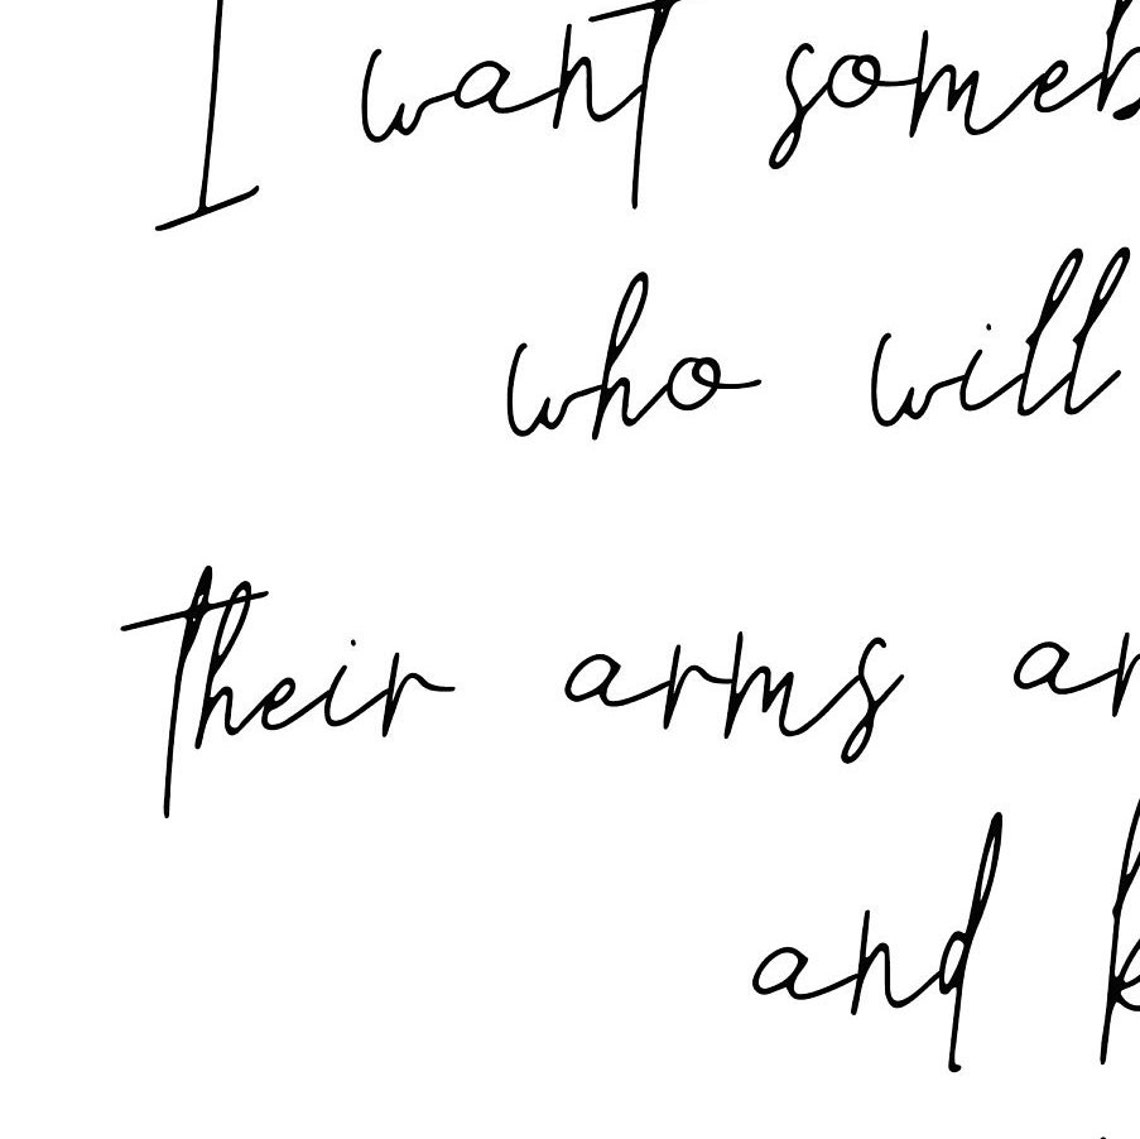 I want someb
who will
their arms ar
and k